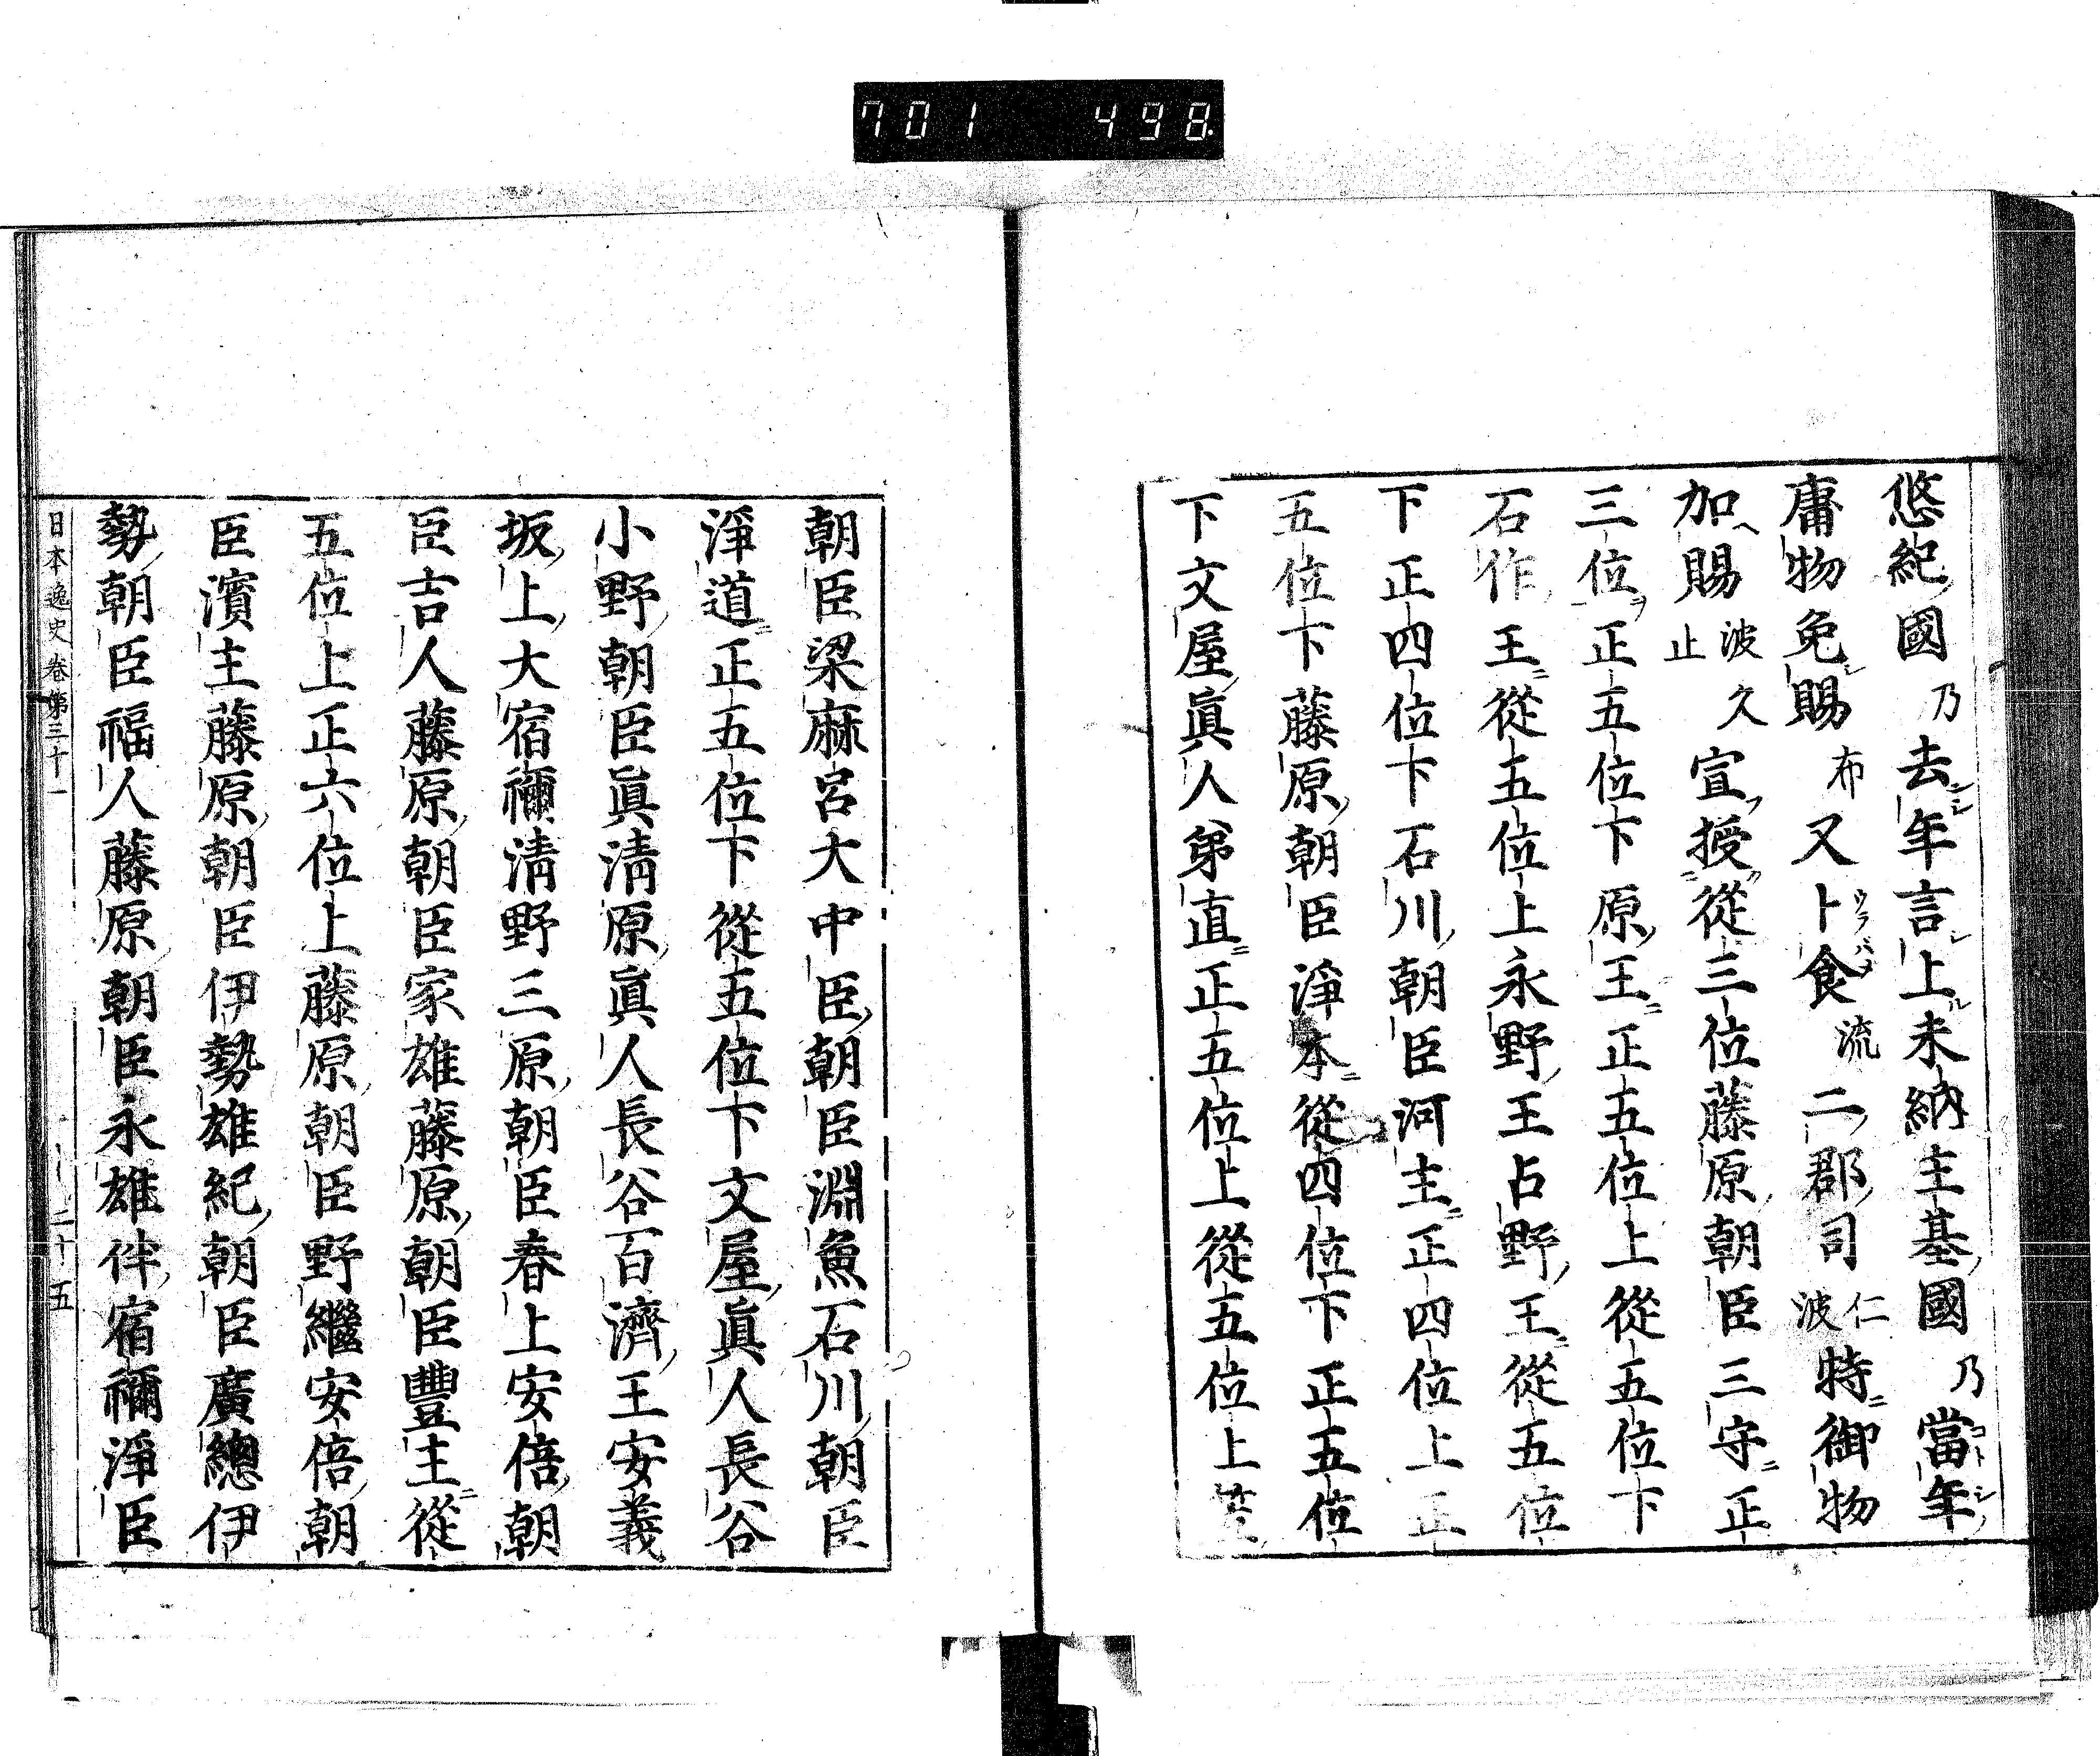 701 498
悠紀國乃去年言上未納主基國乃當年
庸物免賜布又卜食流二郡司仁波特御物
加賜波久止宣授從三位藤原朝臣三守正
三位正五位下原王正五位上從五位下
石作王從五位上永野王占野王從五位
下正四位下石川朝臣河主正四位上正
五位下藤原朝臣淨本從四位下正五位
下文屋眞人弟直正五位上從五位上
朝臣梁麻呂大中臣朝臣淵魚石川朝臣
淨道正五位下從五位下文屋眞人長谷
小野朝臣眞淸原眞人長谷百濟王安義
坂上大宿禰淸野三原朝臣春上安倍朝
臣吉人藤原朝臣家雄藤原朝臣豐主從
五位上正六位上藤原朝臣野繼安倍朝
臣濱主藤原朝臣伊勢雄紀朝臣廣總伊
勢朝臣福人藤原朝臣永雄伴宿禰淨臣
日本逸史 卷第三十一 二十五